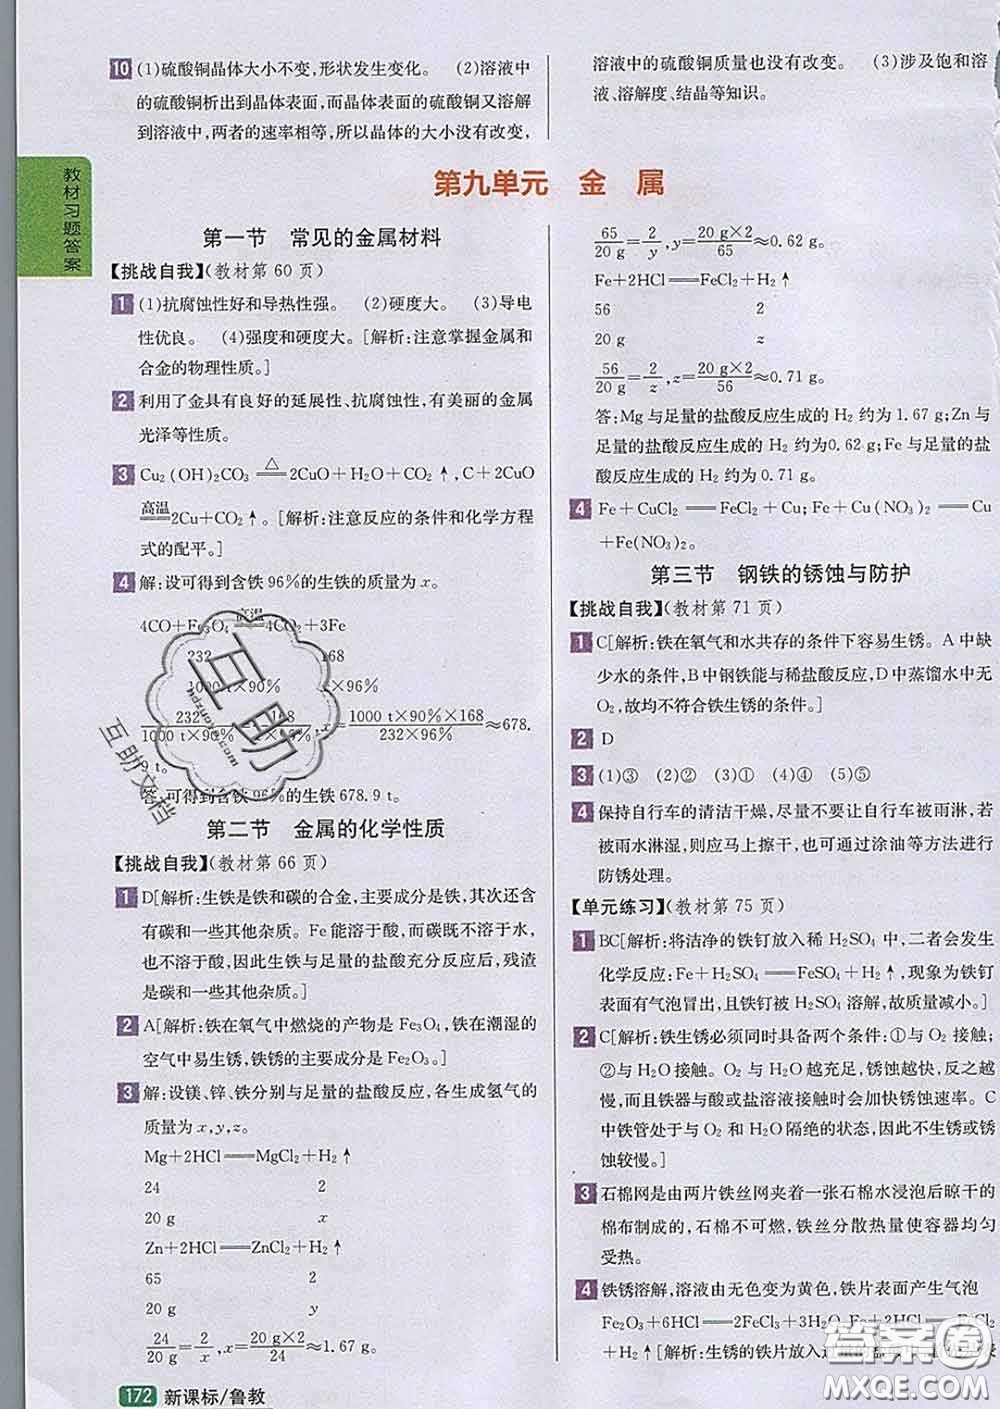 10 (1)硫酸铜晶体大小不变,形状发生变化。 (2)溶液中
的硫酸铜析出到晶体表面,而晶体表面的硫酸铜又溶解
到溶液中,两者的速率相等,所以晶体的大小没有改变,
溶液中的硫酸铜质量也没有改变。 (3)涉及饱和溶
液、溶解度、结晶等知识。
教材习题答案
第九单元 金 属
第一节 常见的金属材料
【挑战自我】(教材第 60 页)
1 (1)抗腐蚀性好和导热性强。 (2)硬度大。 (3)导电
性优良。 (4)强度和硬度大。[解析:注意掌握金属和
合金的物理性质。]
2 利用了金具有良好的延展性、抗腐蚀性,有美丽的金属
光泽等性质。
3 Cu₂(OH)₂CO₃ ══△══ 2CuO+H₂O+CO₂↑,C+2CuO
══高温══ 2Cu+CO₂↑。[解析:注意反应的条件和化学方程
式的配平。]
4 解:设可得到含铁 96%的生铁的质量为 x。
4CO+Fe₃O₄ ══高温══ 4CO₂+3Fe
232 168
1000 t×90% x×96%
232/1000 t×90%=168/x×96%,x=1000 t×90%×168/232×96%≈678.
9 t。
答:可得到含铁 96%的生铁 678.9 t。
第二节 金属的化学性质
【挑战自我】(教材第 66 页)
1 D[解析:生铁是铁和碳的合金,主要成分是铁,其次还含
有碳和一些其他杂质。Fe 能溶于酸,而碳既不溶于水,
也不溶于酸,因此生铁与足量的盐酸充分反应后,残渣
是碳和一些其他杂质。]
2 A[解析:铁在氧气中燃烧的产物是 Fe₃O₄,铁在潮湿的
空气中易生锈,铁锈的主要成分是 Fe₂O₃。]
3 解:设镁、锌、铁分别与足量的盐酸反应,各生成氢气的
质量为 x,y,z。
Mg+2HCl══MgCl₂+H₂↑
24 2
20 g x
Zn+2HCl══ZnCl₂+H₂↑
65 2
20 g y
24/20 g=2/x,x=20 g×2/24≈1.67 g。
65/20 g=2/y,y=20 g×2/65≈0.62 g。
Fe+2HCl══FeCl₂+H₂↑
56 2
20 g z
56/20 g=2/z,z=20 g×2/56≈0.71 g。
答:Mg 与足量的盐酸反应生成的 H₂ 约为 1.67 g;Zn 与
足量的盐酸反应生成的 H₂ 约为0.62 g;Fe 与足量的盐
酸反应生成的 H₂ 约为 0.71 g。
4 Fe+CuCl₂══FeCl₂+Cu;Fe+Cu(NO₃)₂══Cu
+Fe(NO₃)₂。
第三节 钢铁的锈蚀与防护
【挑战自我】(教材第 71 页)
1 C[解析:铁在氧气和水共存的条件下容易生锈。A 中缺
少水的条件,B中钢铁能与稀盐酸反应,D 中蒸馏水中无
O₂,故均不符合铁生锈的条件。]
2 D
3 (1)③ (2)② (3)① (4)④ (5)⑤
4 保持自行车的清洁干燥,尽量不要让自行车被雨淋,若
被雨水淋湿,则应马上擦干,也可通过涂油等方法进行
防锈处理。
【单元练习】(教材第 75 页)
1 BC[解析:将洁净的铁钉放入稀 H₂SO₄ 中,二者会发生
化学反应:Fe+H₂SO₄══FeSO₄+H₂↑,现象为铁钉
表面有气泡冒出,且铁钉被 H₂SO₄ 溶解,故质量减小。]
2 C[解析:铁生锈必须同时具备两个条件:①与 O₂ 接触;
②与 H₂O 接触。与 H₂O 越充足,锈蚀越快,反之越
慢,而且铁器与酸或盐溶液接触时会加快锈蚀速率。C
中铁管处于与 O₂ 和 H₂O 隔绝的状态,因此不生锈或锈
蚀较慢。]
3 石棉网是由两片铁丝网夹着一张石棉水浸泡后晾干的
棉布制成的,石棉不可燃,铁丝分散热量使容器均匀
受热。
4 铁锈溶解,溶液由无色变为黄色,铁片表面产生气泡
Fe₂O₃+6HCl══2FeCl₃+3H₂O Fe+2HCl══FeCl₂
+H₂↑[解析:生锈的铁片放入
172 新课标/鲁教
互助
互助文档
答案圈
MXQE.COM